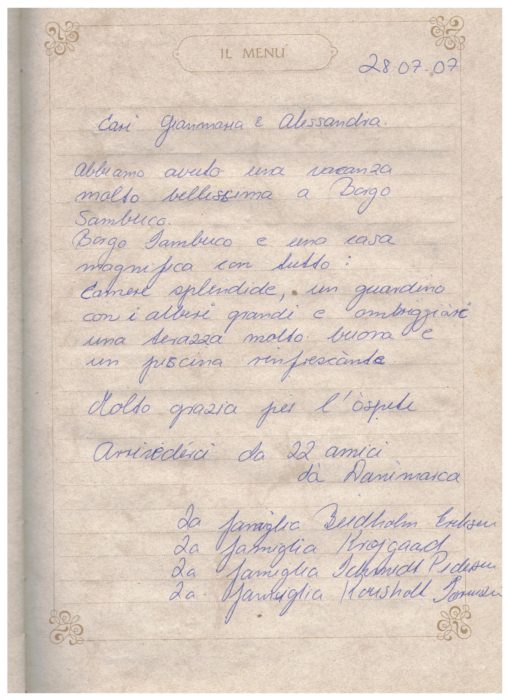 IL MENÚ
28.07.07
Cari Gianmaria e Alessandra.
Abbiamo avuto una vacanza
molto bellissima a Borgo
Sambuco.
Borgo Sambuco e una casa
magnifica con tutto:
Camere splendide, un guardino
con i alberi grandi e
una terazza molto buona e
un piscina rinfrescànte
Molto grazia per l'òspete
Arrivedérci da 22 amici
da Danimarca
La famiglia Bredholm Eriksen
La famiglia Krojgaard
La famiglia Schmidt Pedersen
La famiglia